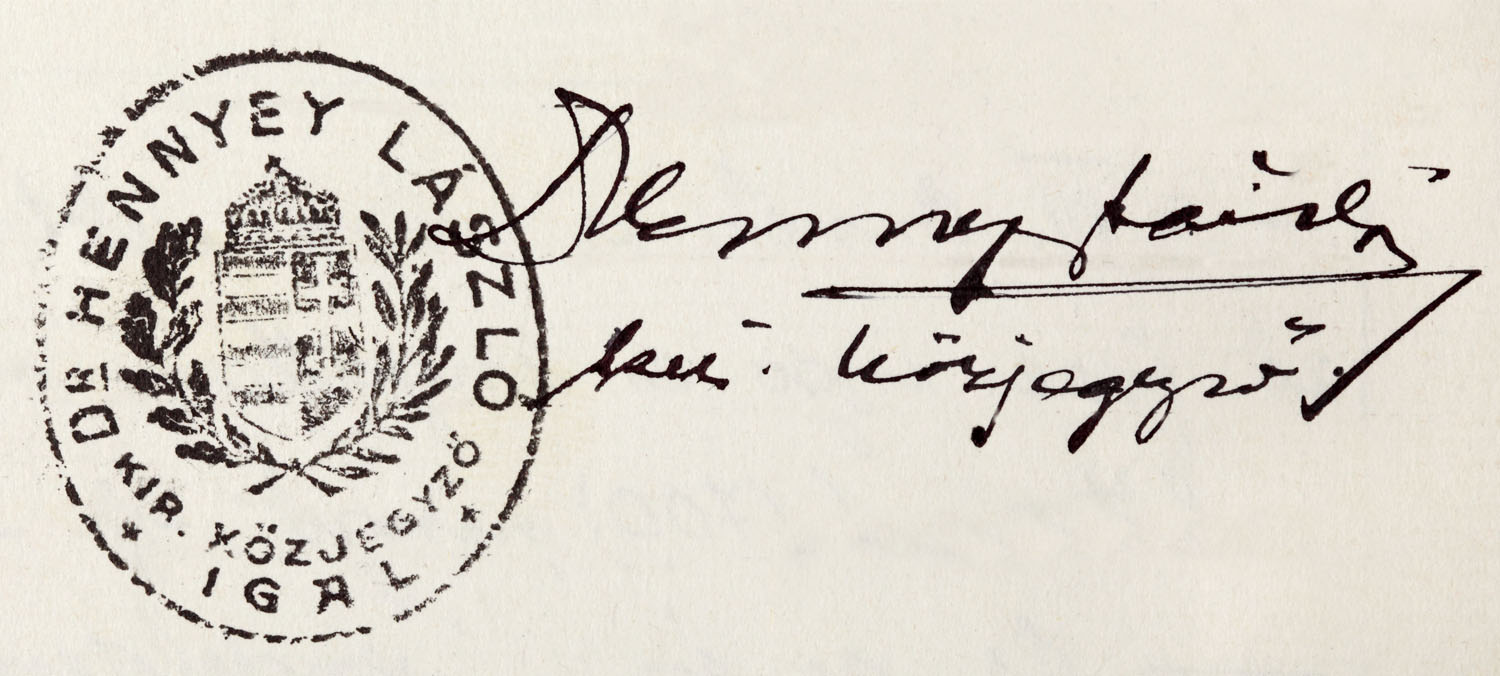 DR HENNYEY LÁSZLÓ
KIR. KÖZJEGYZŐ
IGAL
Hennyey László
kir. közjegyző.